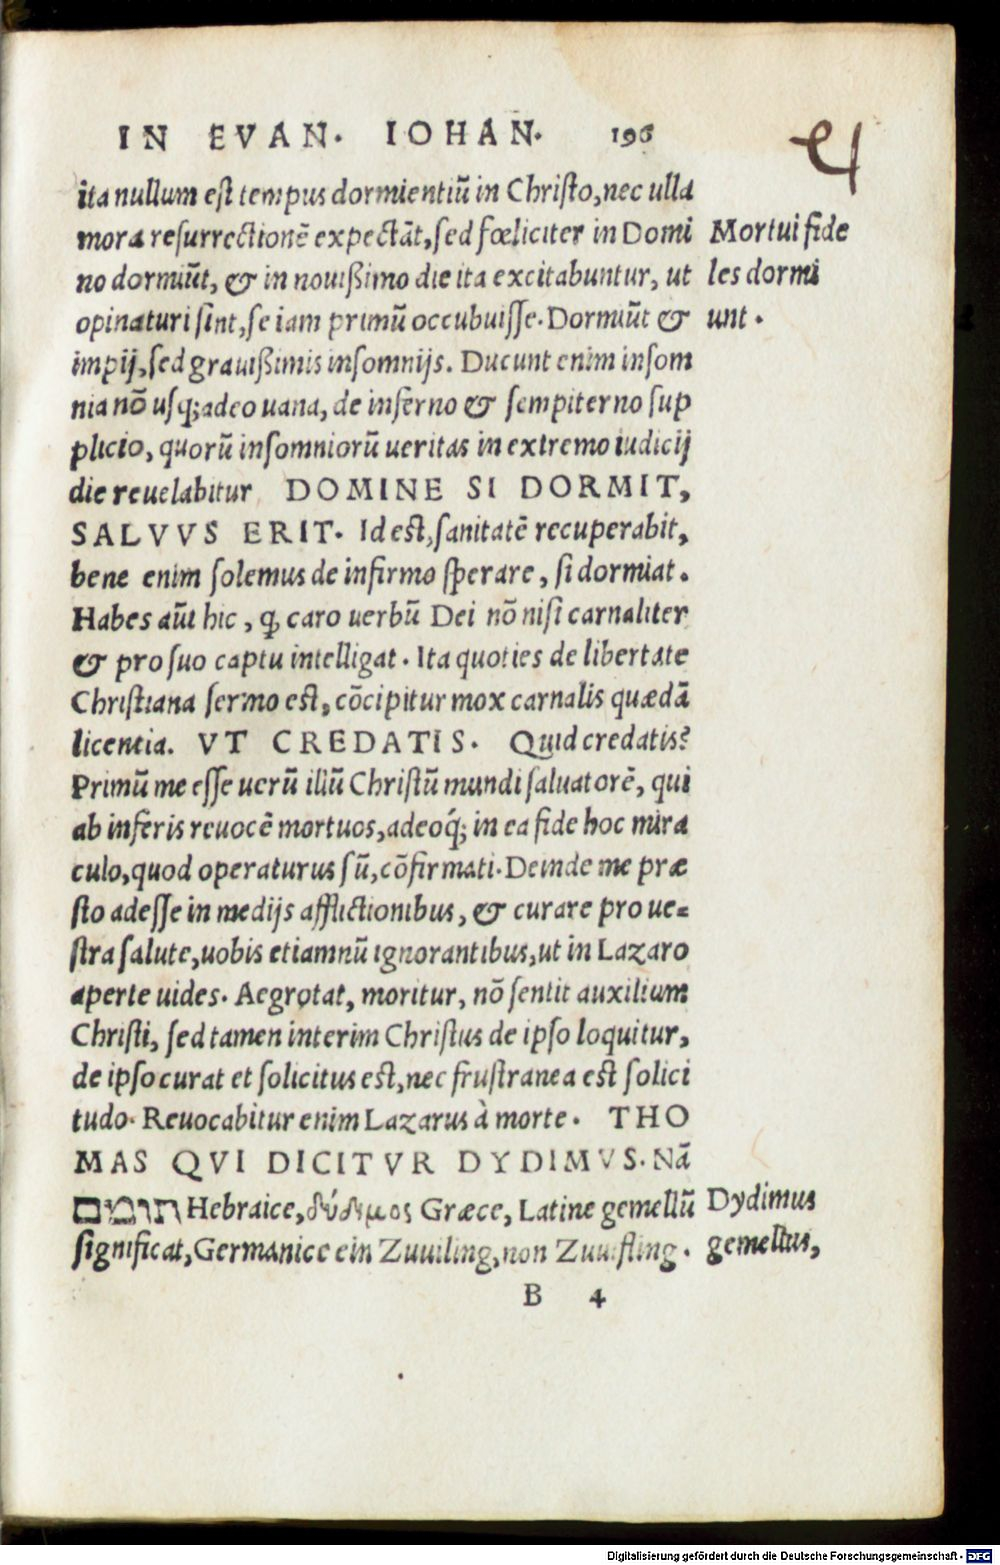 IN EVAN. IOHAN. 196
ita nullum est tempus dormientiū in Christo, nec ulla
mora resurrectionē expectāt, sed fœliciter in Domi
no dormiūt, & in nouißimo die ita excitabuntur, ut
opinaturi sint, se iam primū occubuisse. Dormiūt &
impij, sed grauißimis insomnijs. Ducunt enim insom
nia nō usq; adeo uana, de inferno & sempiterno sup
plicio, quorū insomniorū ueritas in extremo iudicij
die reuelabitur DOMINE SI DORMIT,
SALVVS ERIT. Id est, sanitatē recuperabit,
bene enim solemus de infirmo sperare, si dormiat.
Habes aūt hic, ꝙ caro uerbū Dei nō nisi carnaliter
& pro suo captu intelligat. Ita quoties de libertate
Christiana sermo est, cōcipitur mox carnalis quædā
licentia. VT CREDATIS. Quid credatis?
Primū me esse uerū illū Christū mundi saluatorē, qui
ab inferis reuocē mortuos, adeoq́; in ea fide hoc mira
culo, quod operaturus sū, cōfirmati. Deinde me præ
sto adesse in medijs afflictionibus, & curare pro ue=
stra salute, uobis etiamnū ignorantibus, ut in Lazaro
aperte uides. Aegrotat, moritur, nō sentit auxilium
Christi, sed tamen interim Christus de ipso loquitur,
de ipso curat et solicitus est, nec frustranea est solici
tudo. Reuocabitur enim Lazarus à morte. THO
MAS QVI DICITVR DYDIMVS. Nā
תומים Hebraice, δύδιμος Græce, Latine gemellū
significat, Germanice ein Zuuiling, non Zuuifling.
B 4
Mortui fide
les dormi
unt.
Dydimus
gemellus,
Digitalisierung gefördert durch die Deutsche Forschungsgemeinschaft - DFG